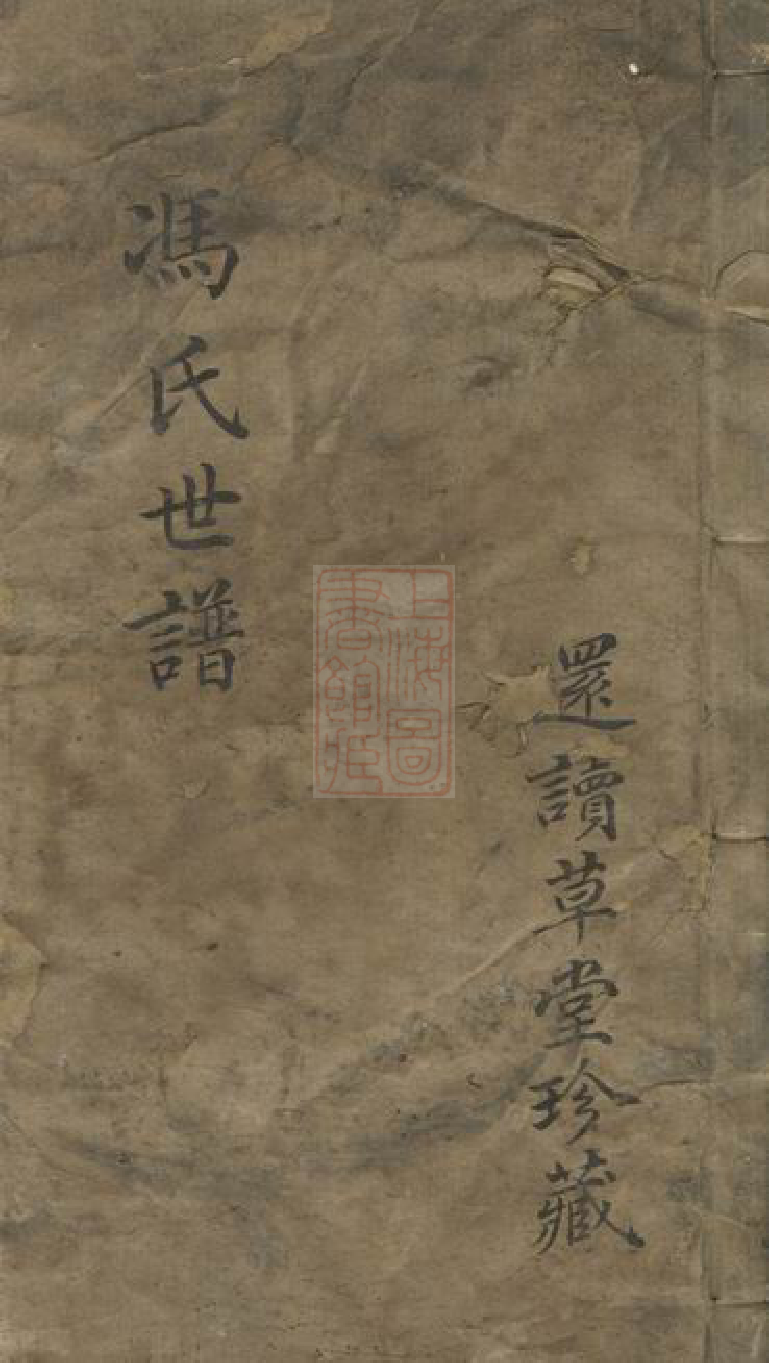 還讀草堂珍藏
上海圖
書館藏
馮氏世譜